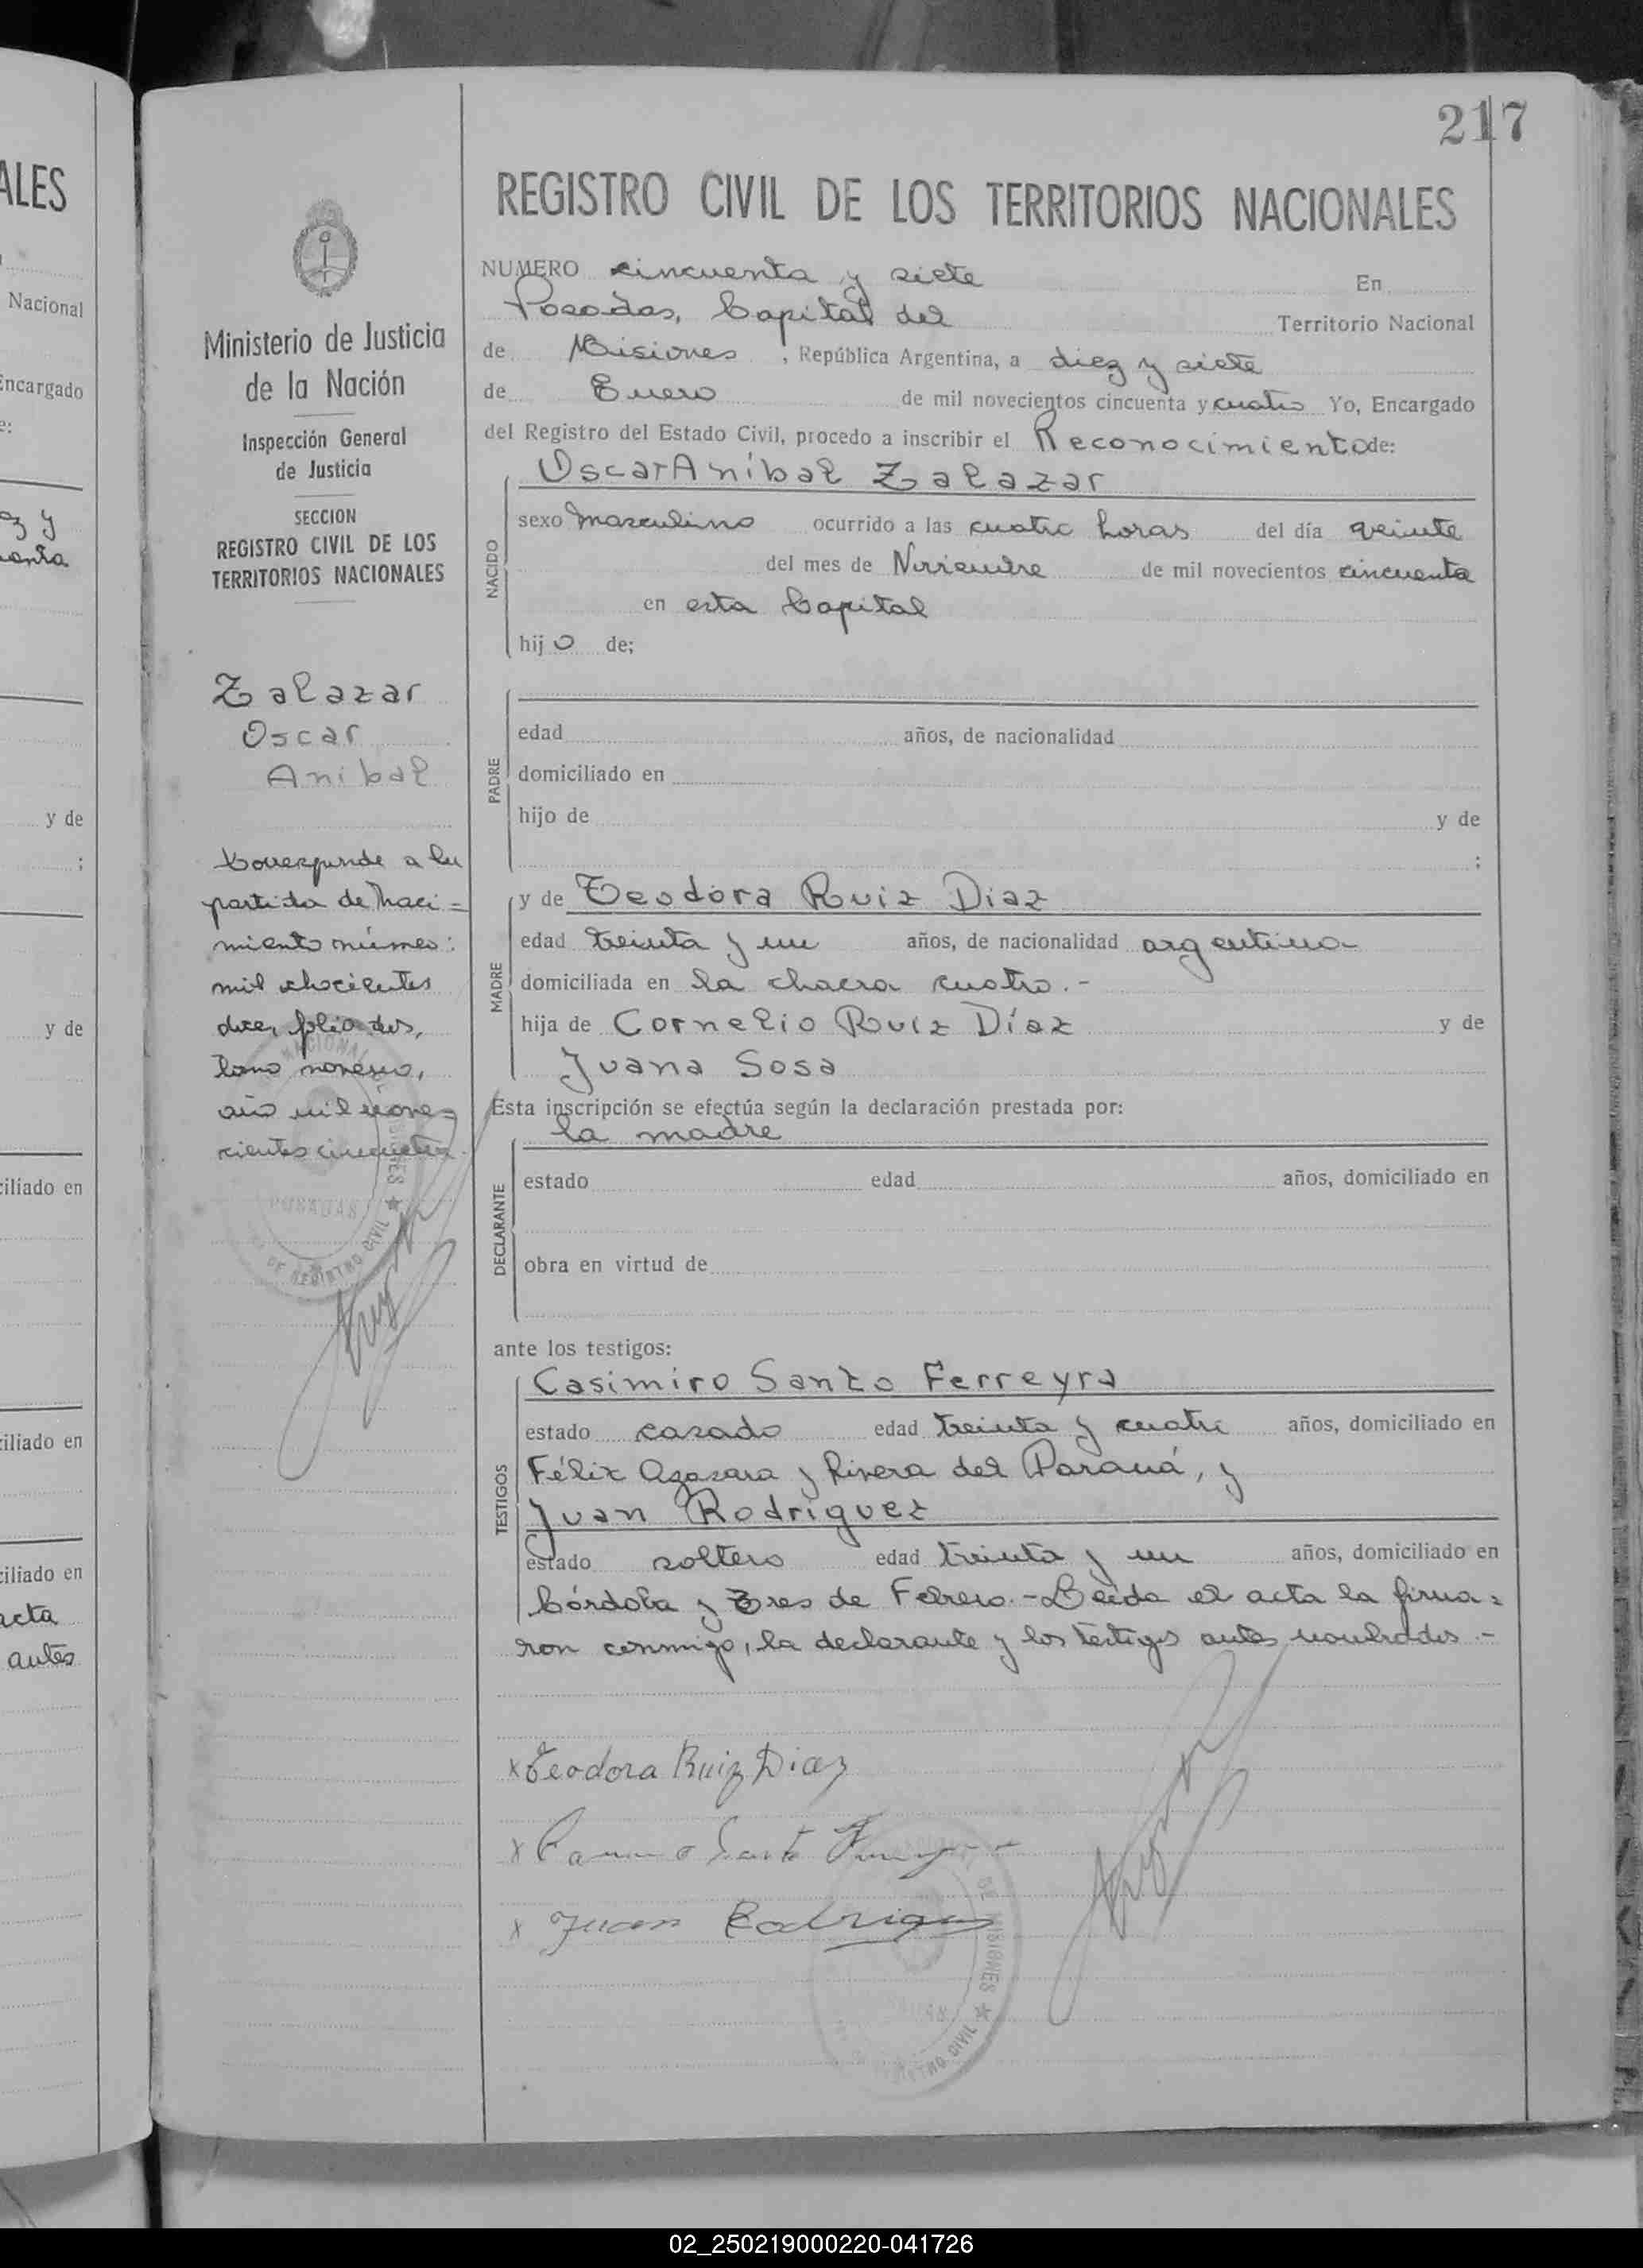 217
REGISTRO CIVIL DE LOS TERRITORIOS NACIONALES
NUMERO cincuenta y siete En
Posadas, Capital del Territorio Nacional
de Misiones, República Argentina, a diez y siete
de Enero de mil novecientos cincuenta y cuatro Yo, Encargado
del Registro del Estado Civil, procedo a inscribir el Reconocimiento de:
Oscar Aníbal Zalazar
NACIDO
sexo masculino ocurrido a las cuatro horas del día veinte
del mes de Noviembre de mil novecientos cincuenta
en esta Capital
hijo de;
PADRE
edad años, de nacionalidad
domiciliado en
hijo de y de
;
MADRE
y de Teodora Ruiz Diaz
edad treinta y un años, de nacionalidad argentina
domiciliada en la chacra cuatro.-
hija de Cornelio Ruiz Díaz y de
Juana Sosa
Esta inscripción se efectúa según la declaración prestada por:
la madre
DECLARANTE
estado edad años, domiciliado en
obra en virtud de
ante los testigos:
TESTIGOS
Casimiro Santo Ferreyra
estado casado edad treinta y cuatro años, domiciliado en
Félix Azasara y Rivera del Paraná, y
Juan Rodríguez
estado soltero edad treinta y un años, domiciliado en
Córdoba y Tres de Febrero.- Leída el acta la firma=
ron conmigo, la declarante y los testigos antes nombrados.-
x Teodora Ruiz Diaz
x Santo
x Juan Rodrigues
DE MISIONES ★
REGISTRO CIVIL
Ministerio de Justicia
de la Nación
Inspección General
de Justicia
SECCION
REGISTRO CIVIL DE LOS
TERRITORIOS NACIONALES
Zalazar
Oscar
Anibal
Corresponde a la
partida de naci=
miento número:
mil ochocientos
doce, folio dos,
tomo noveno,
año mil nove=
cientos cincuenta.
NACIONAL
MISIONES ★
POSADAS
DE REGISTRO CIVIL
ALES
Nacional
Encargado
e:
y
enta
y de
;
y de
ciliado en
ciliado en
ciliado en
acta
antes
02_250219000220-041726